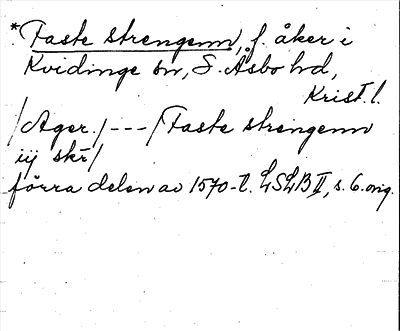 *Faste strengenn, f. åker i
Kvidinge sn, S. Åsbo hd,
Krist. l.
/Ager./ --- /Faste strengenn
iij skr̄/
förra delen av 1570-t. LSLB II, s. 6. orig.